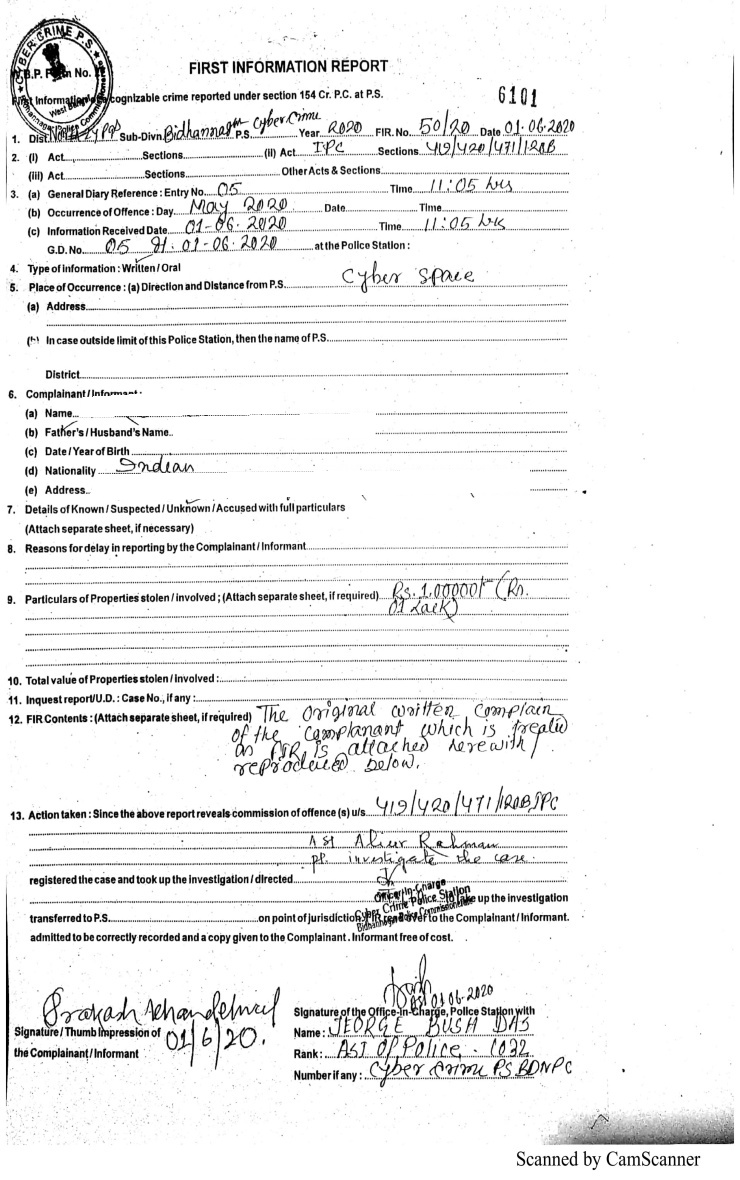 CYBER CRIME P.S.
W.B.P. Form No.
FIRST INFORMATION REPORT
First Information cognizable crime reported under section 154 Cr. P.C. at P.S.
6101
1. Dist. Sub-Divn. Bidhannagar P.S. Cyber Crime Year 2020 FIR. No. 50/20 Date 01.06.2020
2. (i) Act Sections (ii) Act IPC Sections 419/420/471/120B
(iii) Act Sections Other Acts & Sections
3. (a) General Diary Reference : Entry No. 05 Time 11:05 hrs
(b) Occurrence of Offence : Day May 2020 Date Time
(c) Information Received Date 01-06-2020 Time 11:05 hrs
G.D. No. 05 dt. 01-06-2020 at the Police Station :
4. Type of information : Written / Oral
5. Place of Occurrence : (a) Direction and Distance from P.S. Cyber Space
(a) Address
In case outside limit of this Police Station, then the name of P.S.
District
6. Complainant / Informant :
(a) Name
(b) Father's / Husband's Name
(c) Date / Year of Birth
(d) Nationality Indian
(e) Address
7. Details of Known / Suspected / Unknown / Accused with full particulars
(Attach separate sheet, if necessary)
8. Reasons for delay in reporting by the Complainant / Informant
9. Particulars of Properties stolen / involved ; (Attach separate sheet, if required) Rs. 1,00000/- (Rs.
01 Lack)
10. Total value of Properties stolen / involved :
11. Inquest report/U.D. : Case No., if any :
12. FIR Contents : (Attach separate sheet, if required) The original written complain
of the complanant which is treated
as FIR is attached herewith /
reproduced below.
13. Action taken : Since the above report reveals commission of offence (s) u/s 419/420/471/120B IPC
ASI Aliur Rahman
pl. investigate the case.
registered the case and took up the investigation / directed
Officer-In-Charge
Cyber Crime Police Station
Bidhannagar Police Commissionerate
to take up the investigation
transferred to P.S. on point of jurisdiction FIR read over to the Complainant / Informant.
admitted to be correctly recorded and a copy given to the Complainant. Informant free of cost.
01.06.2020
Prakash Khandelwal
01/6/20.
Signature / Thumb Impression of
the Complainant / Informant
Signature of the Office-In-Charge, Police Station with
Name : JEORGE BUSH DAS
Rank : ASI Of Police - 1032
Number if any : Cyber Crime PS BDNPC
Scanned by CamScanner